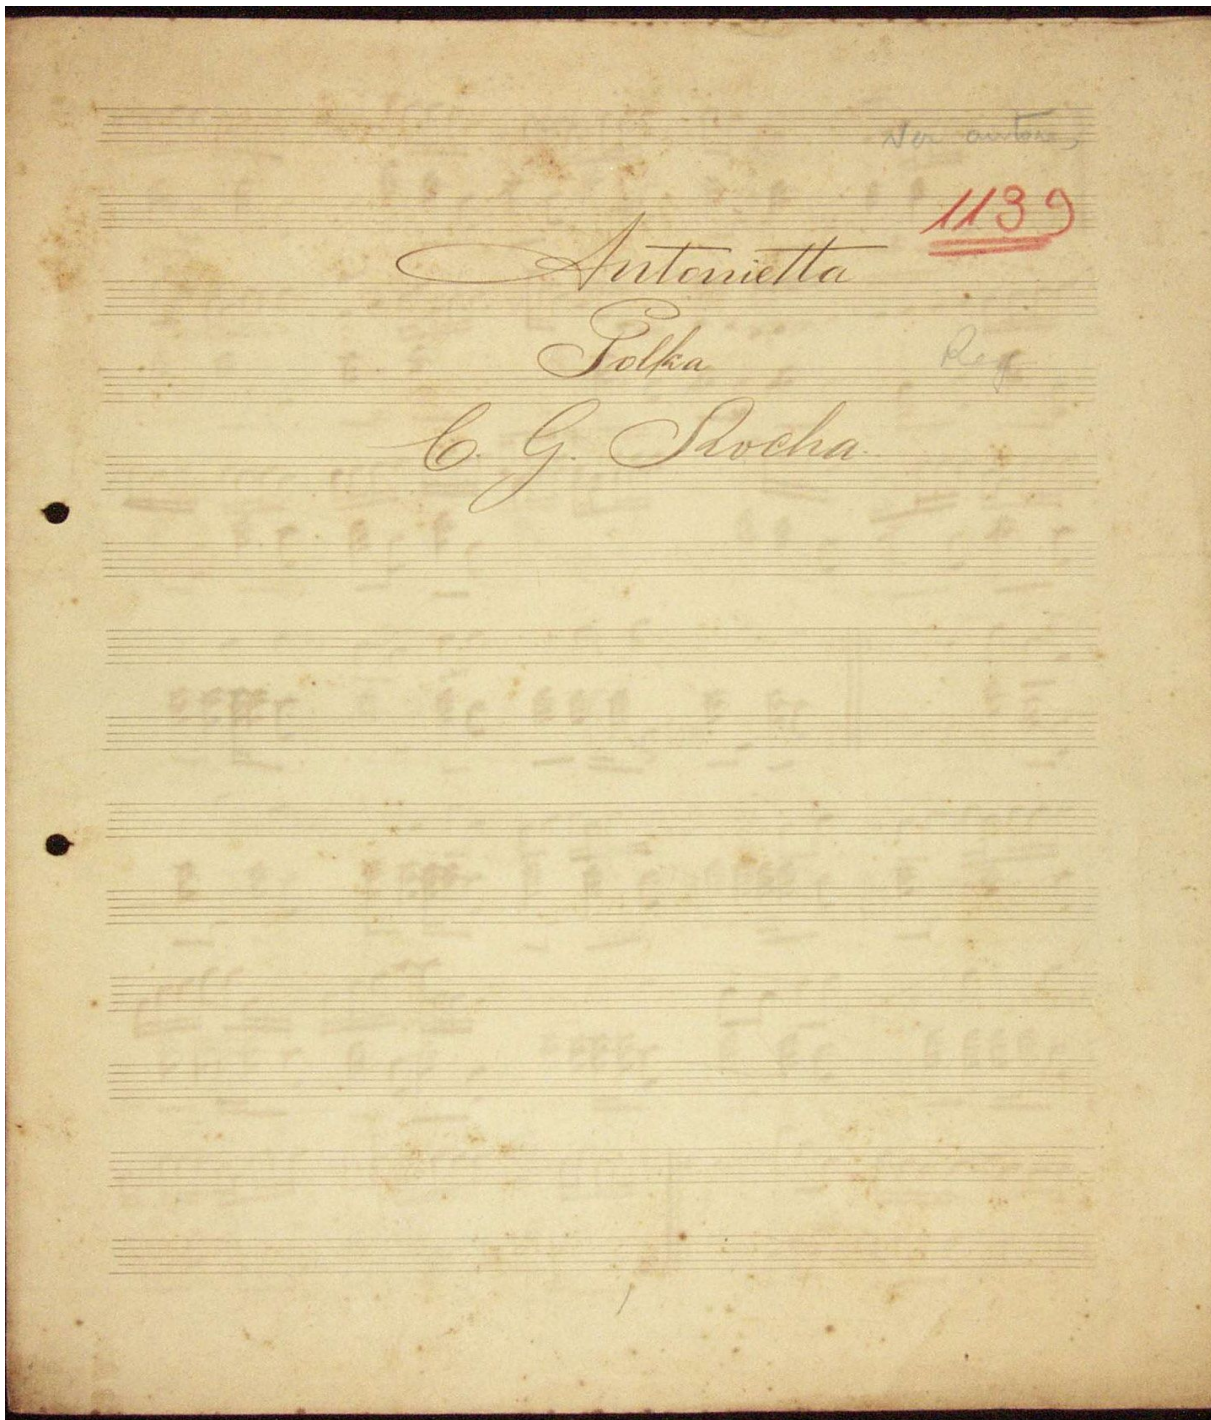 Ver autores
1139
Antonietta
Polka
Reg
C. G. Rocha.